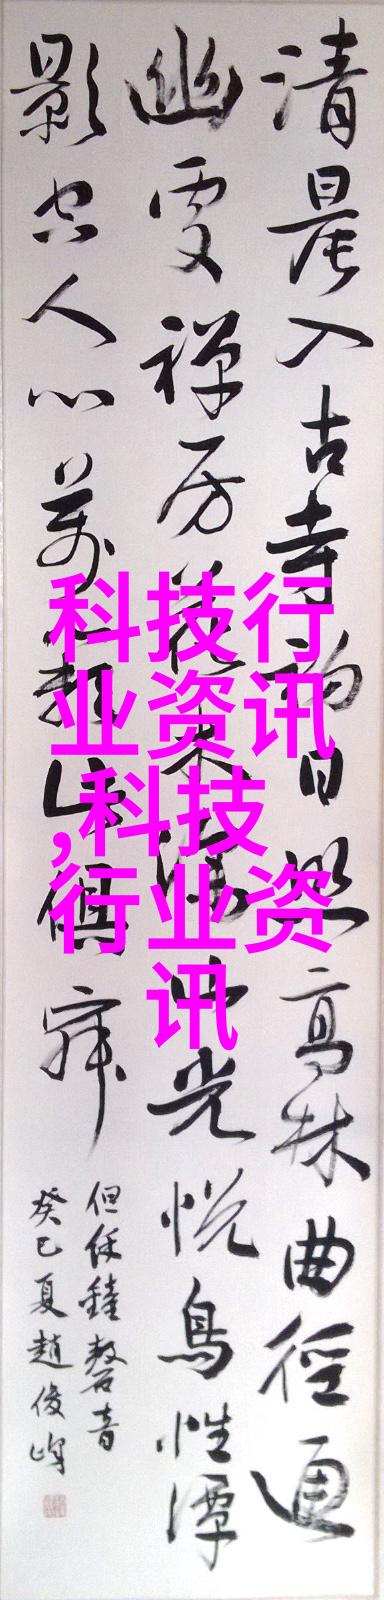 清晨入古寺初日照高林曲徑通
幽處禪房花木深山光悅鳥性潭
影空人心萬籟此俱寂
但余鐘磬音
癸巳夏趙俊峰
科技行
业资讯
,科技
行业资
讯